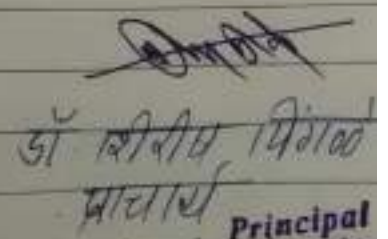 डॉ शिरीष पिंगळे
प्राचार्य
Principal